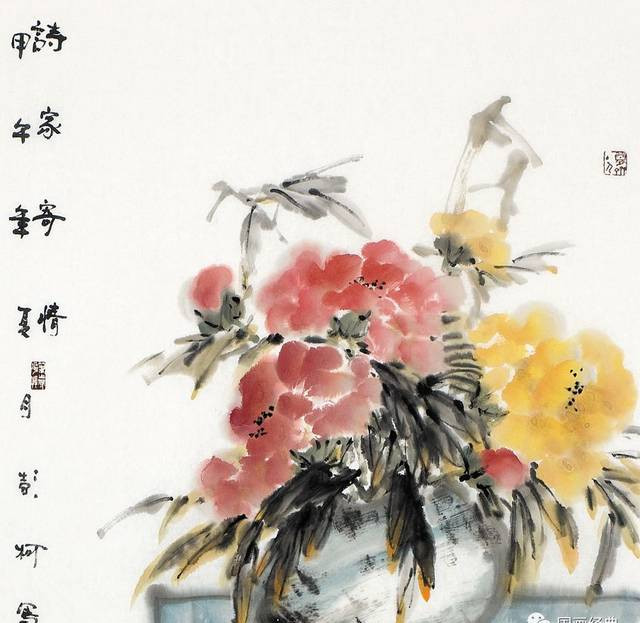 詩家寄情
甲午年夏月彭柯寫
国画经典